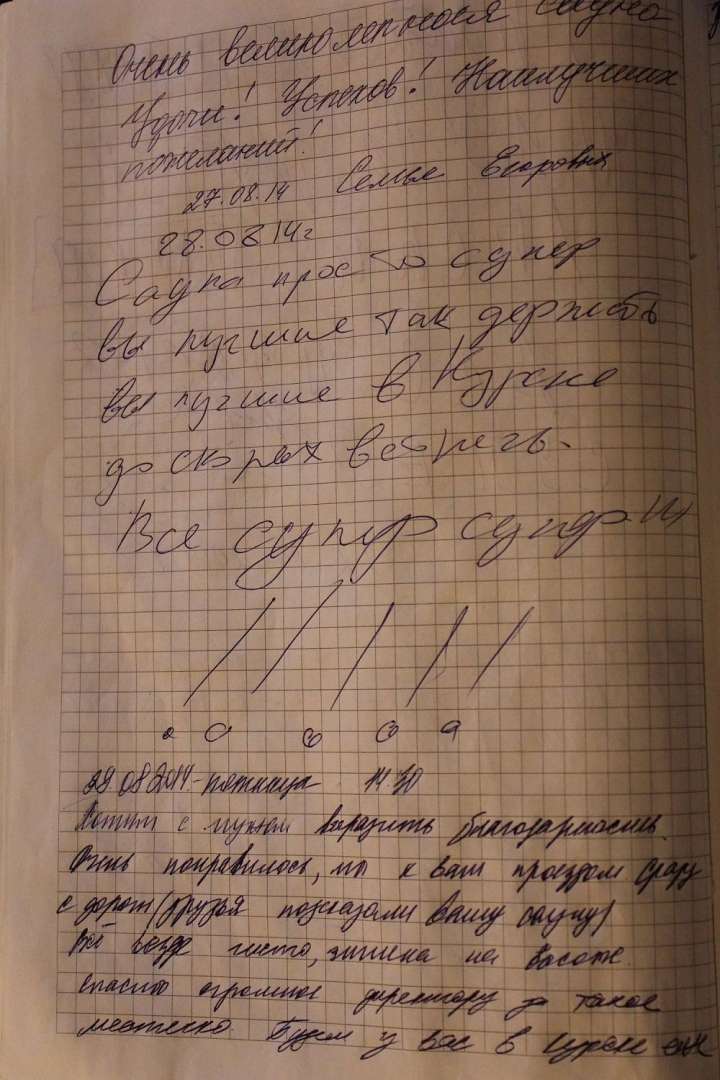 Очень великолепная сауна
Удачи! Успехов! Наилучших
пожеланий!
27.08.14 Семья Егоровых
28.08 14г
Сауна просто супер
вы лучшие так держать
вы лучшие в Курске
до скорых встречь.
Все супер супер
!!!!!
29.08.2014 - пятница 14:30
Хотим с мужем выразить благодарность.
Очень понравилось, мы к вам проездом сразу
с дороги (друзья подсказали вашу сауну)
Всё везде чисто, на высоте.
Спасибо огромное директору за такое
местечко. Будем у вас в Курске